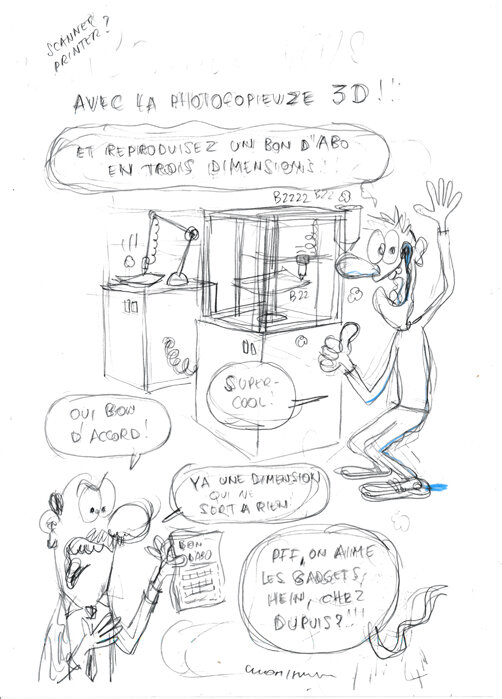 SCANNER?
PRINTER?
AVEC LA PHOTOCOPIEUZE 3D!!
ET REPRODUISEZ UN BON D'ABO
EN TROIS DIMENSIONS!!
BZZZZ BZZ
BZZ
SUPER-
COOL!
OUI BON
D'ACCORD!
YA UNE DIMENSION
QUI NE
SERT A RIEN
BON
D'ABO
PFF, ON AIME
LES GADGETS,
HEIN, CHEZ
DUPUIS?!!!